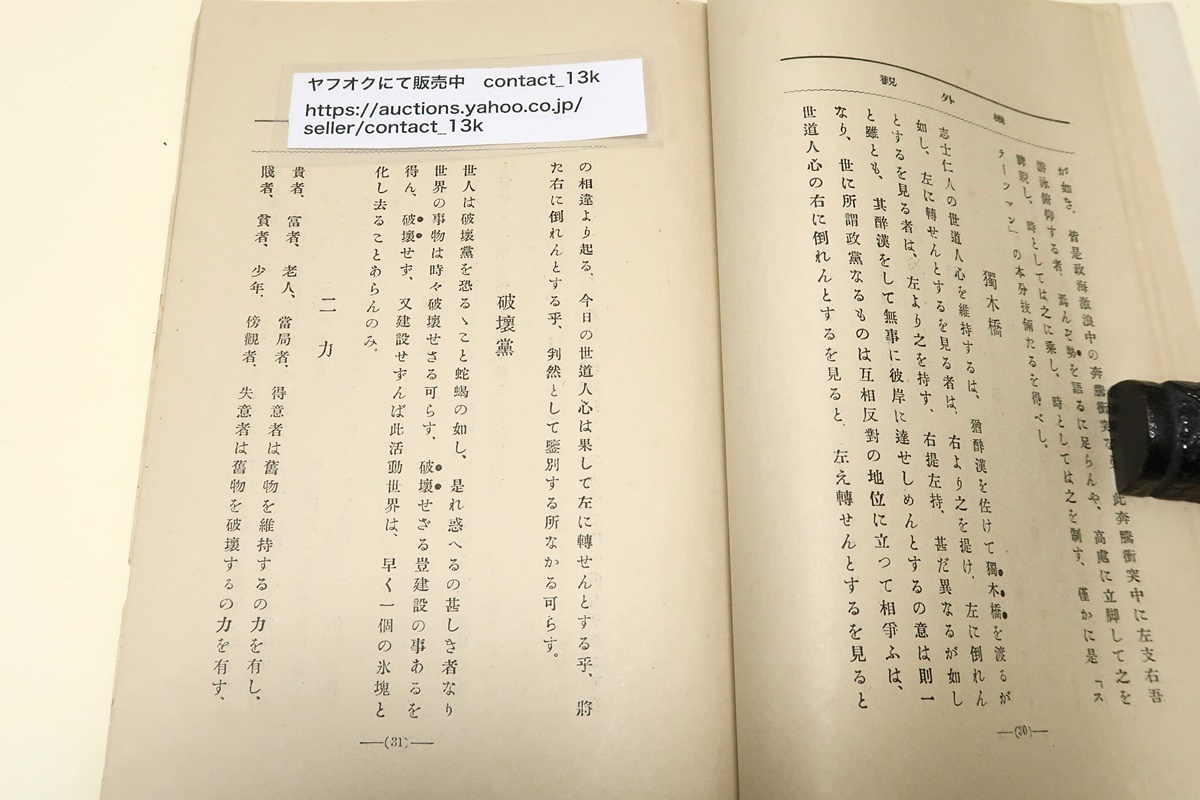 機外觀
が如き、皆是政海激浪中の奔騰衝突な
此奔騰衝突中に左支右吾
游泳俯仰する者、焉んぞ勢を語るに足らんや、高處に立脚して之を
睥睨し、時としては之に乘し、時としては之を制す、僅かに是「ス
テーツマン」の本分技倆たるを得べし。
獨木橋
志士仁人の世道人心を維持するは、猶醉漢を佐けて獨木橋を渡るが
如し、左に轉せんとするを見る者は、右より之を提け、左に倒れん
とするを見る者は、左より之を持す、右提左持、甚だ異なるが如し
と雖とも、其醉漢をして無事に彼岸に達せしめんとするの意は則一
なり、世に所謂政黨なるものは互相反對の地位に立つて相爭ふは、
世道人心の右に倒れんとするを見ると、左え轉せんとするを見ると
(30)
ヤフオクにて販売中 contact_13k
https://auctions.yahoo.co.jp/
seller/contact_13k
の相違より起る、今日の世道人心は果して左に轉せんとする乎、將
た右に倒れんとする乎、判然として鑒別する所なかる可らす。
破壞黨
世人は破壞黨を恐るゝこと蛇蝎の如し、是れ惑へるの甚しき者なり
世界の事物は時々破壞せさる可らす、破壞せざる豈建設の事あるを
得ん、破壞せず、又建設せずんば此活動世界は、早く一個の氷塊と
化し去ることあらんのみ。
二力
貴者、富者、老人、當局者、得意者は舊物を維持するの力を有し、
賤者、貧者、少年、傍觀者、失意者は舊物を破壞するの力を有す、
(31)